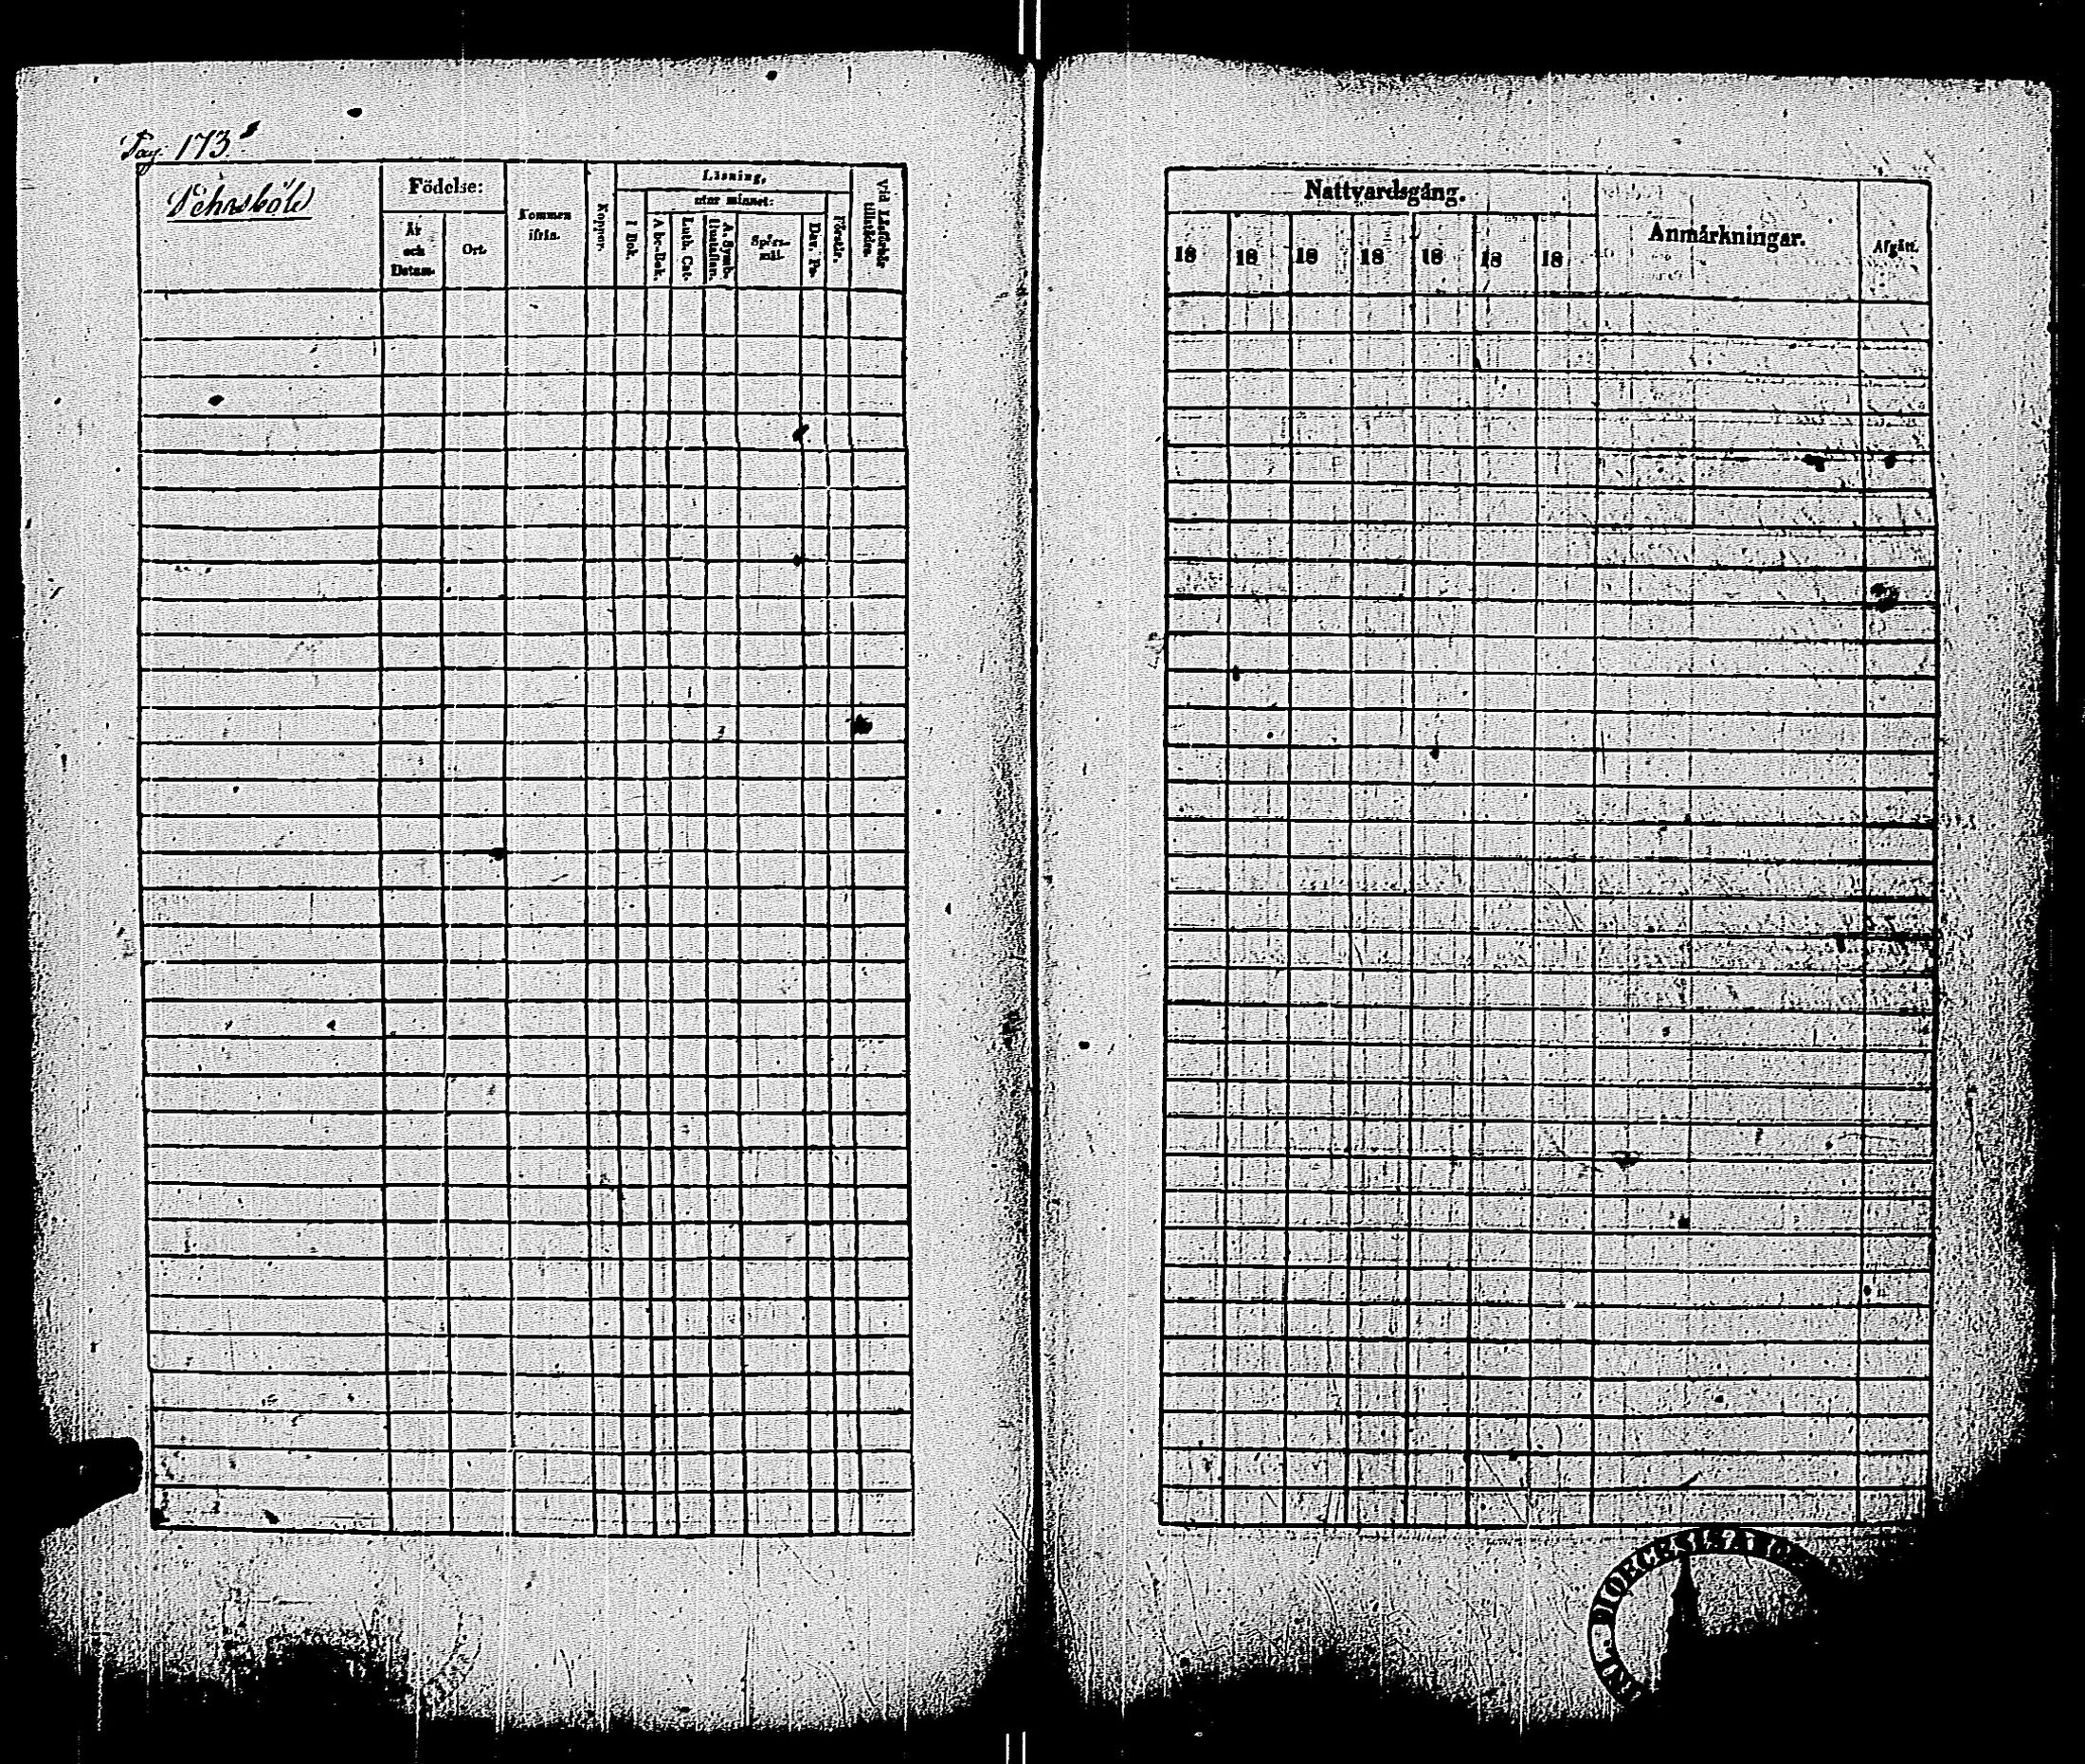 Pag. 173
Pehrsböle
Födelse:
År
och
Datum.
Ort.
Kommen
ifrån.
Koppor.
Läsning,
utur minnet:
I Bok.
Abc-Bok.
Luth. Cat.
A. Symb.
Hustaflan.
Spörs-
mål.
Dav. Ps.
Förstår.
Vid Läsförhör
tillstädes.
Nattvardsgång.
18 18 18 18 18 18 18
Anmärkningar.
Afgått.
DIOECESIS ABOENSIS